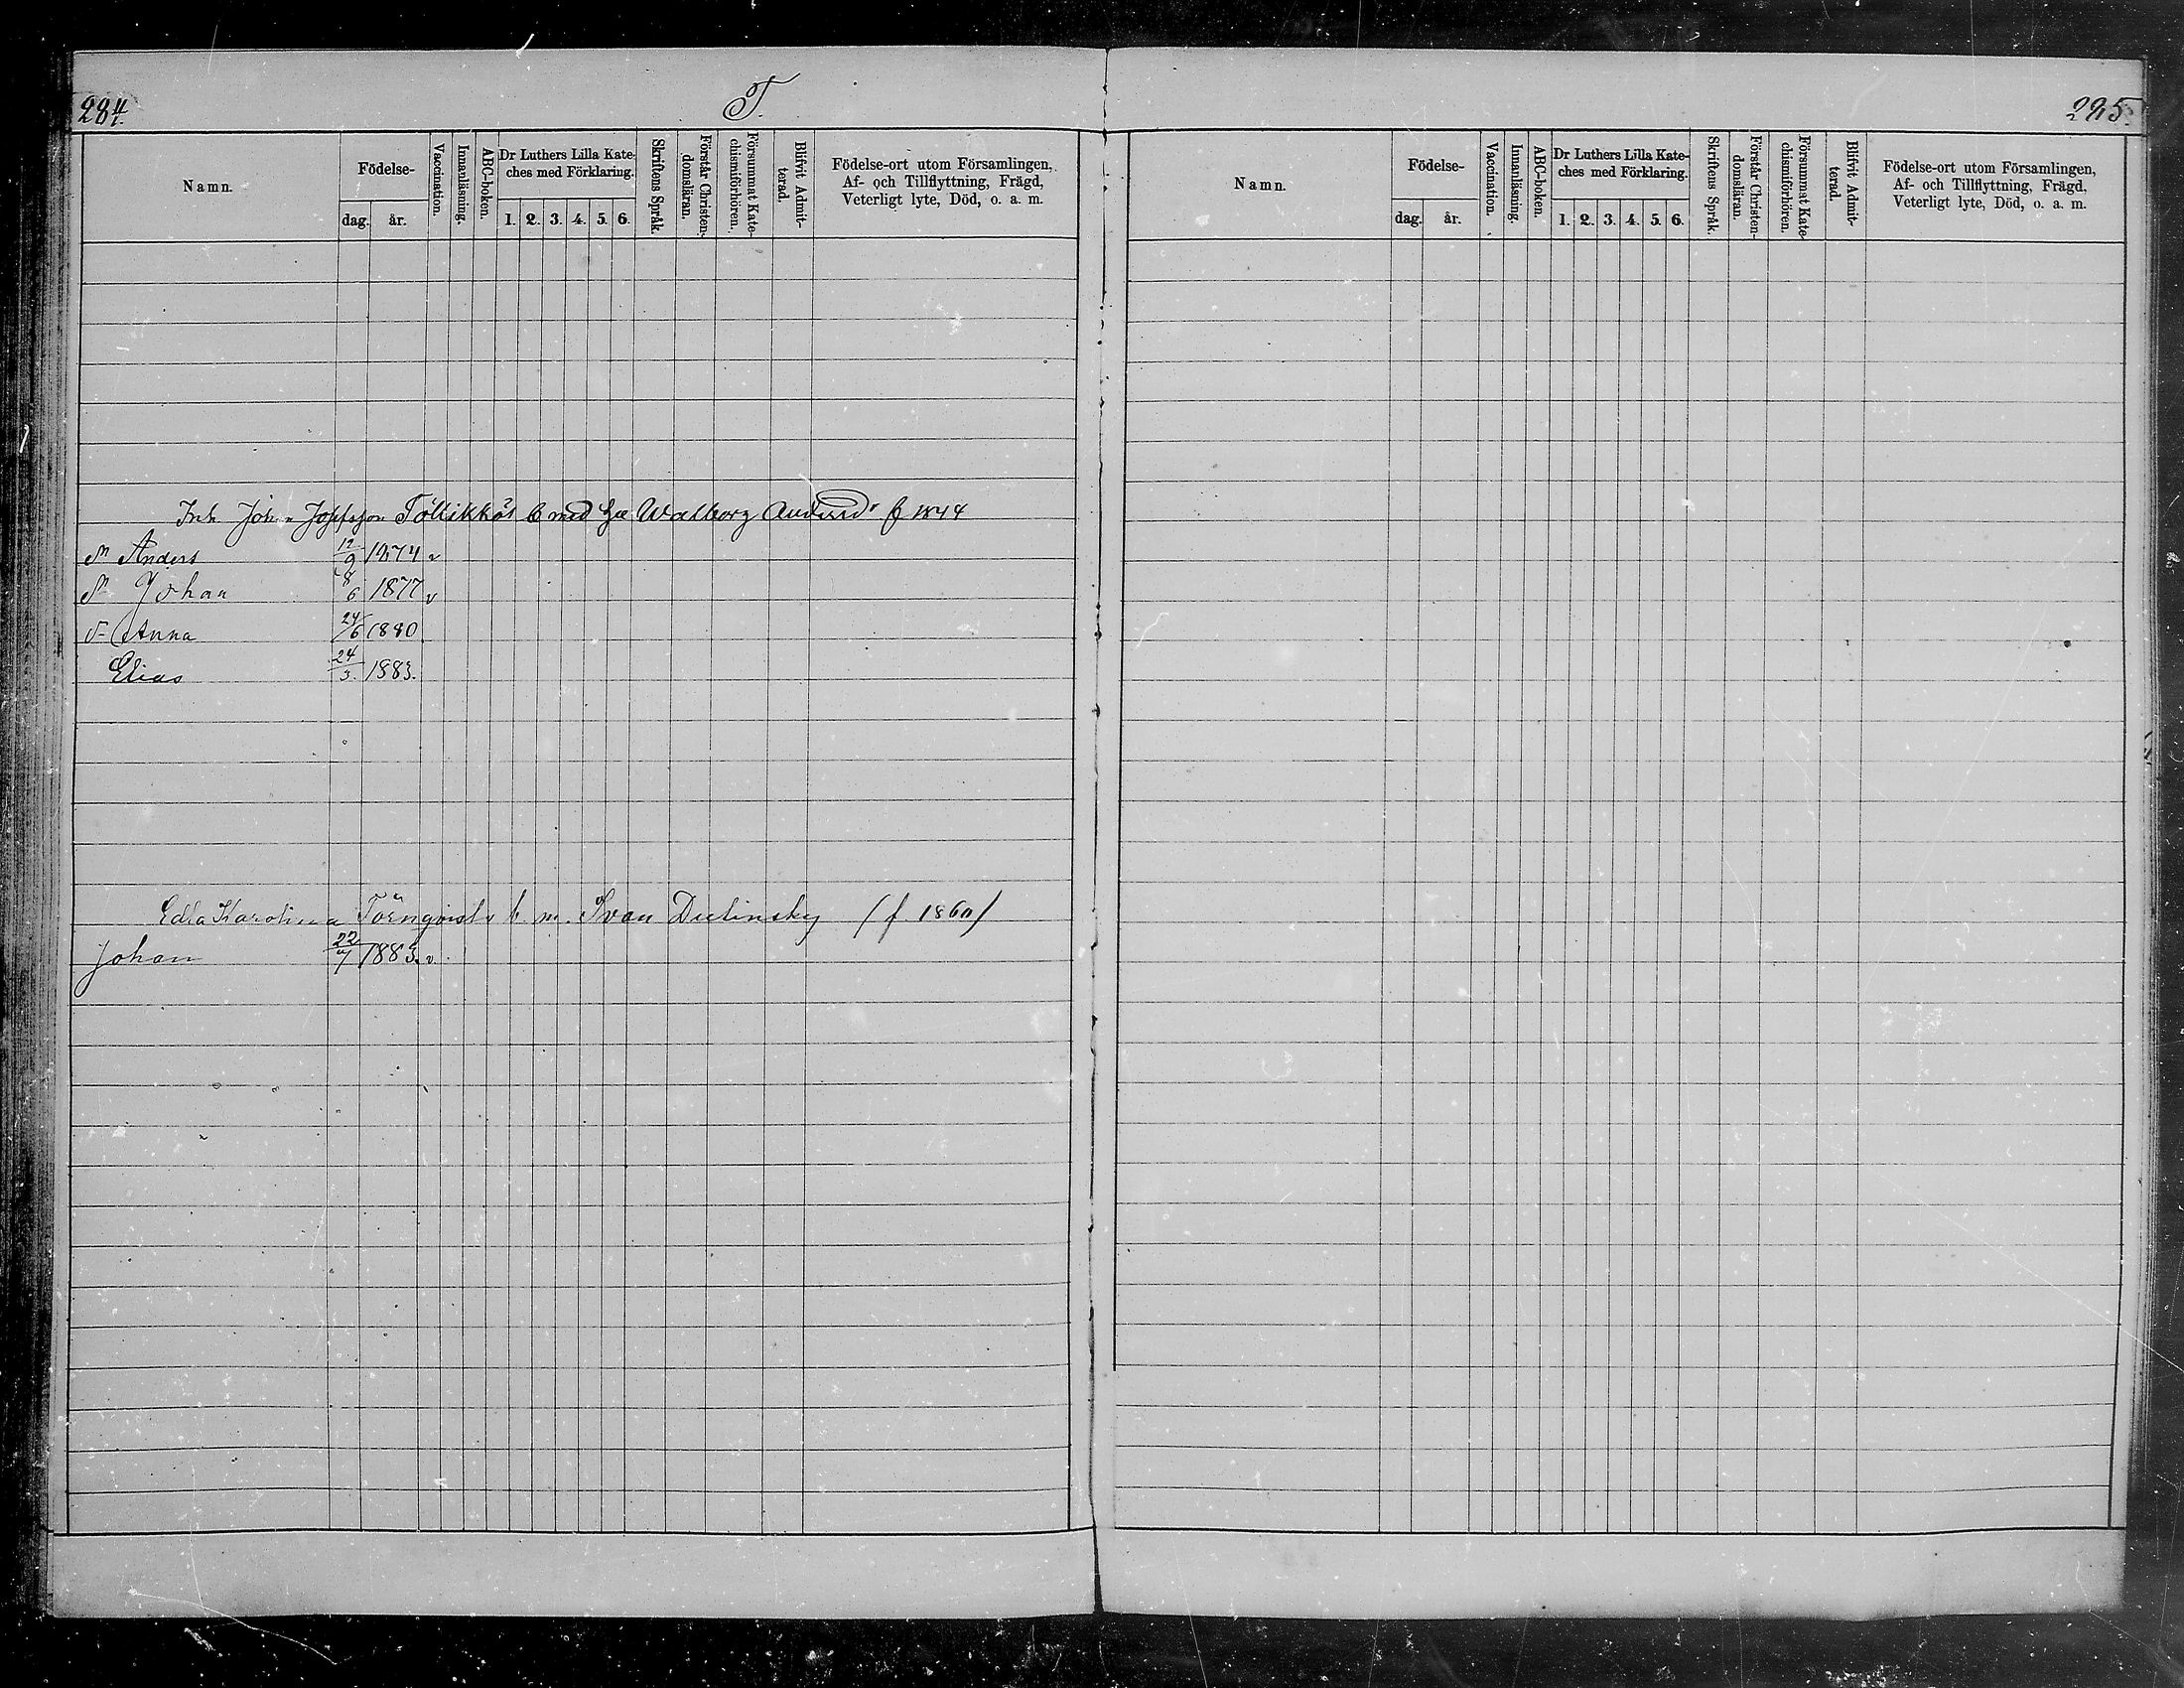 284.
T.
Namn.
Födelse-
dag.
år.
Vaccination.
Innanläsning.
ABC-boken.
Dr Luthers Lilla Kate-
ches med Förklaring.
1. 2. 3. 4. 5. 6.
Skriftens Språk.
Förstår Christen-
domsläran.
Försummat Kate-
chismiförhören.
Blifvit Admit-
terad.
Födelse-ort utom Församlingen,
Af- och Tillflyttning, Frägd,
Veterligt lyte, Död, o. a. m.
Inh. Joh. Jopsson Töllikkös b med Walborg Andersd. f 1844
Sn Anders 12/9 1874 v
Sn Johan 8/6 1877 v
Anna 24/6 1880
Elias 24/3. 1883.
Edla Karolina Törnqvist b. m. Ivan Dubinsky (f 1860)
Johan 22/7 1883. v.
285.
Namn.
Födelse-
dag.
år.
Vaccination.
Innanläsning.
ABC-boken.
Dr Luthers Lilla Kate-
ches med Förklaring.
1. 2. 3. 4. 5. 6.
Skriftens Språk.
Förstår Christen-
domsläran.
Försummat Kate-
chismiförhören.
Blifvit Admit-
terad.
Födelse-ort utom Församlingen,
Af- och Tillflyttning, Frägd,
Veterligt lyte, Död, o. a. m.